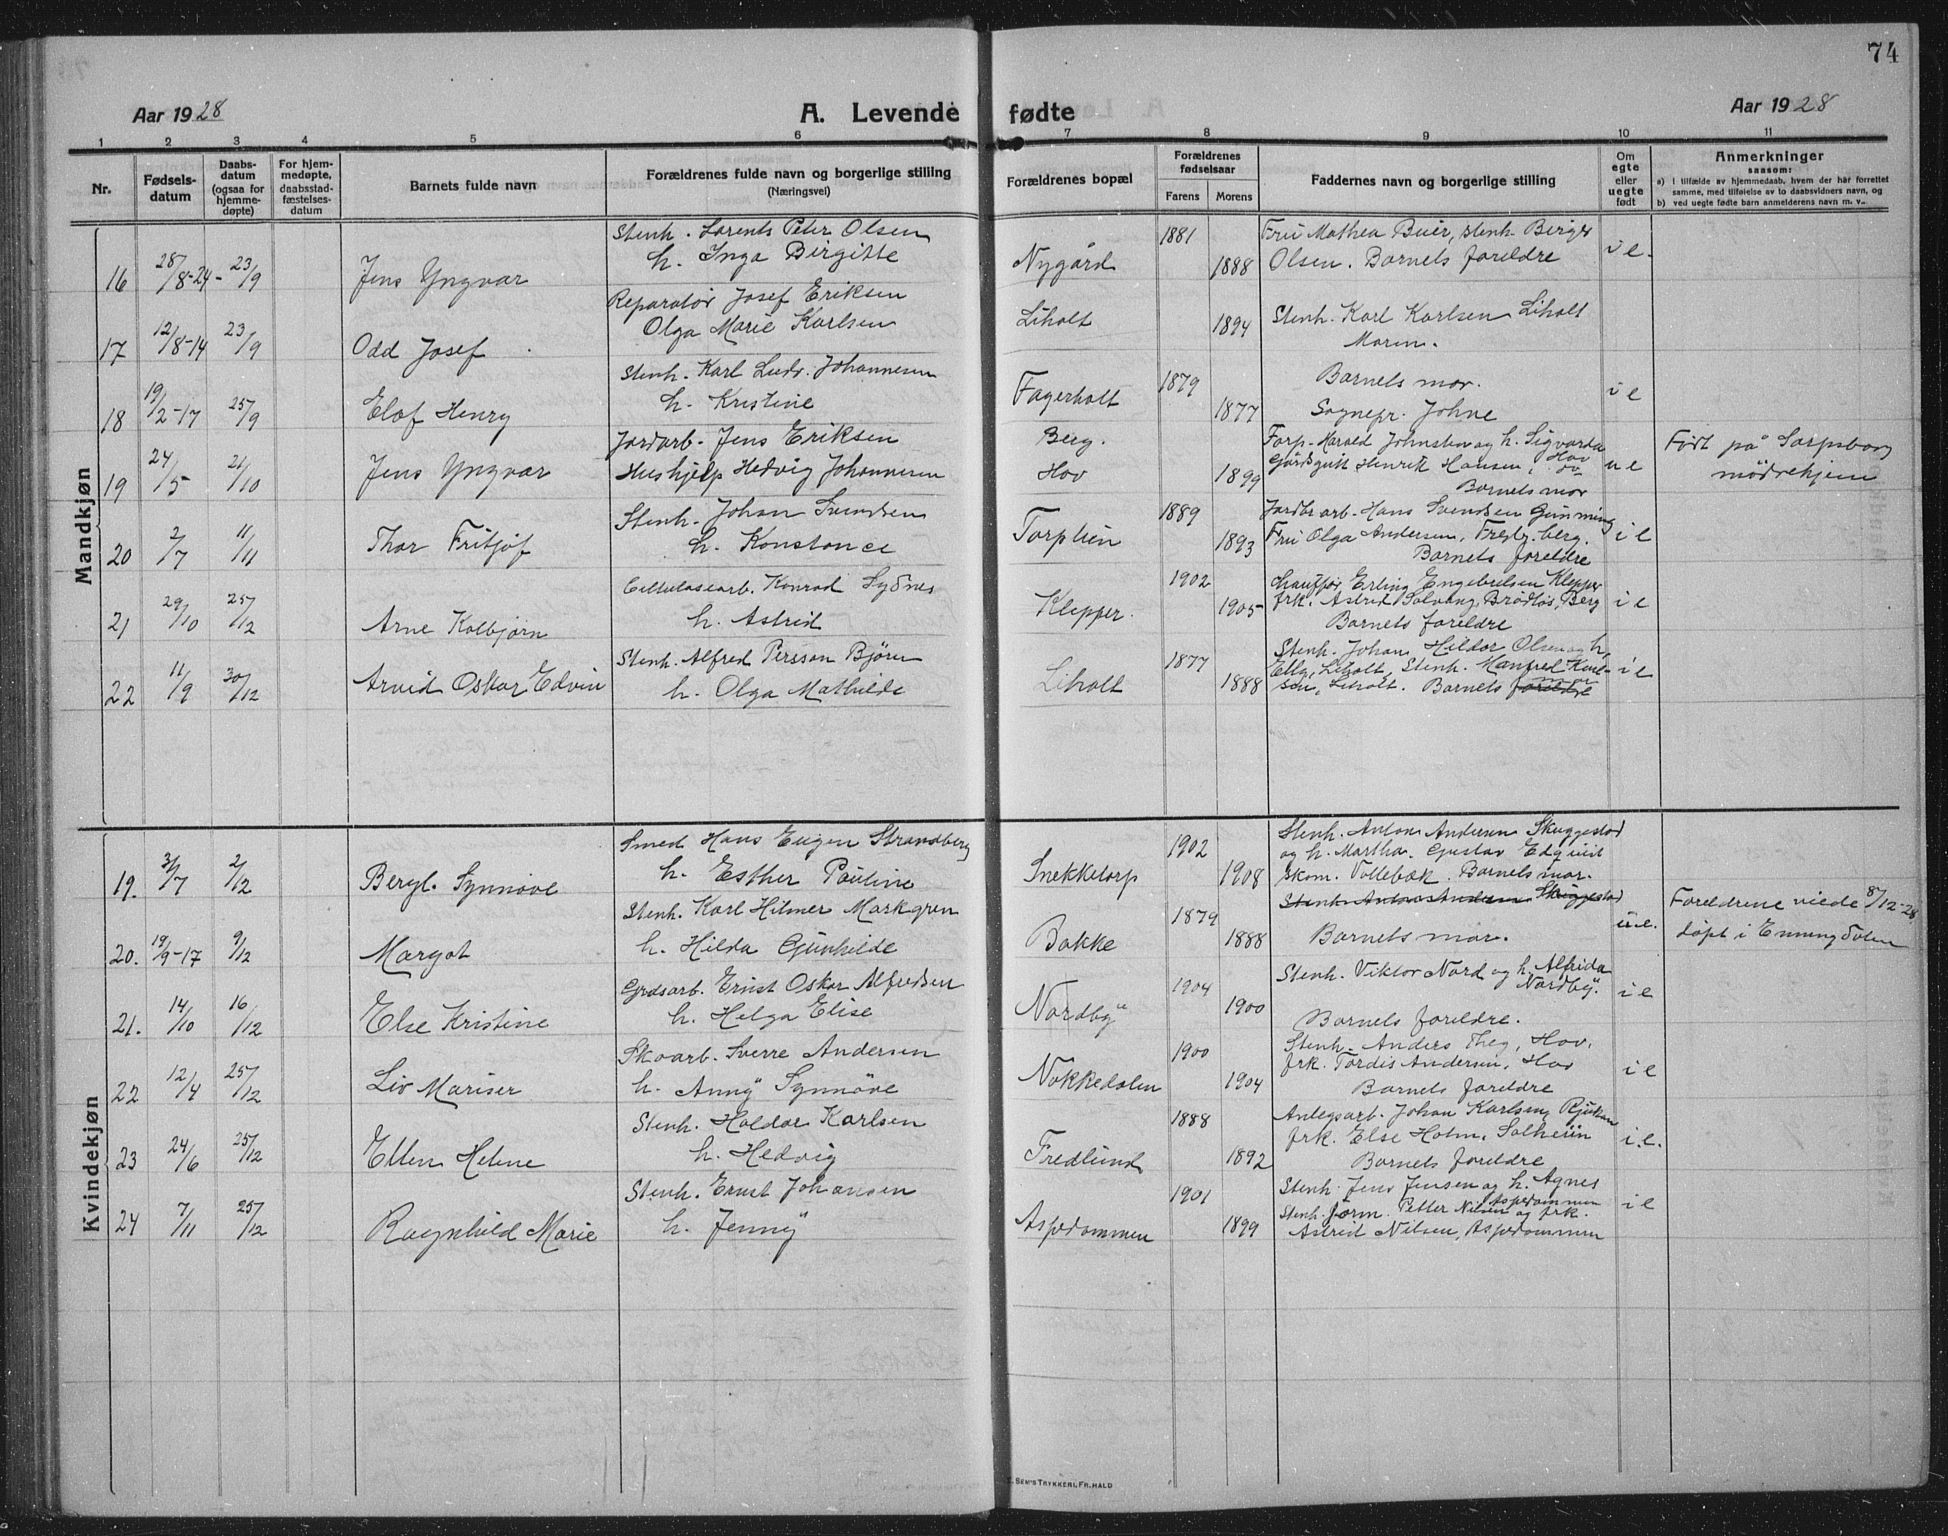 74
Aar 1928 A. Levende fødte Aar 1928
1 2 3 4 5 6 7 8 9 10 11
Nr. Fødselsdatum Daabsdatum (ogsaa for hjemmedøpte) For hjemmedøpte, daabsstadfæstelsesdatum Barnets fulde navn Forældrenes fulde navn og borgerlige stilling (Næringsvei) Forældrenes bopæl Forældrenes fødselsaar Farens Morens Faddernes navn og borgerlige stilling Om egte eller uegte født Anmerkninger saasom:
a) I tilfælde av hjemmedaab, hvem der har forrettet samme, med tilføielse av to daabsvidners navn, og
b) ved uegte fødte barn anmelderens navn m. v.
Mandkjøn
Stenh. Lorents Peter Olsen 1881 Fru Mathea Buer, stenh. Birger
16 28/8-24- 23/9 Jens Yngvar h. Inga Birgitte Nygård 1888 Olsen. Barnets foreldre i e.
Reparatør Josef Eriksen
17 12/8-14 23/9 Odd Josef Olga Marie Karlsen Liholt 1894 Stenh. Karl Karlsen Liholt
Moren.
Stenh. Karl Ludv. Johannesen 1879 Barnets mor.
18 19/2-17 25/9 Elof Henry h. Kristine Fagerholt 1877 Sognepr. Johne i e
Jordarb. Jens Eriksen Berg. Forp. Harald Johnsten og h. Sigvarda
19 24/5 21/10 Jens Yngvar Hushjelp Hedvig Johannesen Hov 1899 Gårdsgutt Henrik Hansen, Hov u e Født på Sarpsborg
Barnets mor mødrehjem
Stenh. Johan Svendsen 1889 Jordbrarb. Hans Svendsen
20 2/7 11/11 Thor Fritjof h. Konstance Torplien 1893 Fru Olga Andersen, berg. i e
Barnets foreldre
Cellulosearb. Konrad Sydnes 1902 Chauffør Erling Engebretsen Klepper
21 29/10 25/12 Arne Kolbjørn h. Astrid Klepper. 1905 frk. Astrid Solvang, Brødløs, Berg i e
Barnets foreldre
Stenh. Alfred Persson Bjøren 1877 Stenh. Johan Hildor Olsen og h.
22 11/9 30/12 Arvid Oskar Edvin h. Olga Mathilde Liholt 1888 Elly, Liholt, Stenh. Manfred Karl- i e
sen, Liholt. Barnets foreldre mor
Kvindekjøn
Smed Hans Eugen Strandberg 1902 Stenh. Anton Andersen Skuggestad
19. 31/7 2/12 Bergl. Synnøve h. Esther Pauline Snekketorp 1908 og h. Martha. Gustav Edquist
skom. Vollebæk. Barnets mor.
Stenh. Karl Hilmer Markgren 1879 Stenh. Anton Andersen Skuggestad Foreldrene viede 8/12-28
20. 19/9-17 9/12 Margot h. Hilda Gunhilde Bakke 1888 Barnets mor. u e. døpt i Enningdalen
Grdsarb. Ernst Oskar Alfredsen 1904 Stenh. Viktor Nord og h. Alfrida
Nordby.
21. 14/10 16/12 Else Kristine h. Helga Elise Nordby 1900 Barnets foreldre. i e
Skoarb. Sverre Andersen 1900 Stenh. Anders Theg, Hov.
22 12/4 25/12 Liv Mariser h. Anny Synnøve Nokkedalen 1904 frk. Tordis Andersen, Hov i e
Barnets foreldre
Stenh. Haldor Karlsen 1888 Anlegsarb. Johan Karlsen, Rjukan
23 24/6 25/12 Ellen Helene h. Hedvig Fredlund 1892 frk. Else Holm, Solheim i.e.
Barnets foreldre
Stenh. Ernst Johansen 1901 Stenh. Jens Jensen og h. Agnes
Aspedammen
24 7/11 25/12 Ragnhild Marie h. Jenny Aspedammen 1899 Stenh. form. Petter Nilsen og frk. i e
Astrid Nilsen, Aspedammen
SEM'S TRYKKERI, FR.HALD